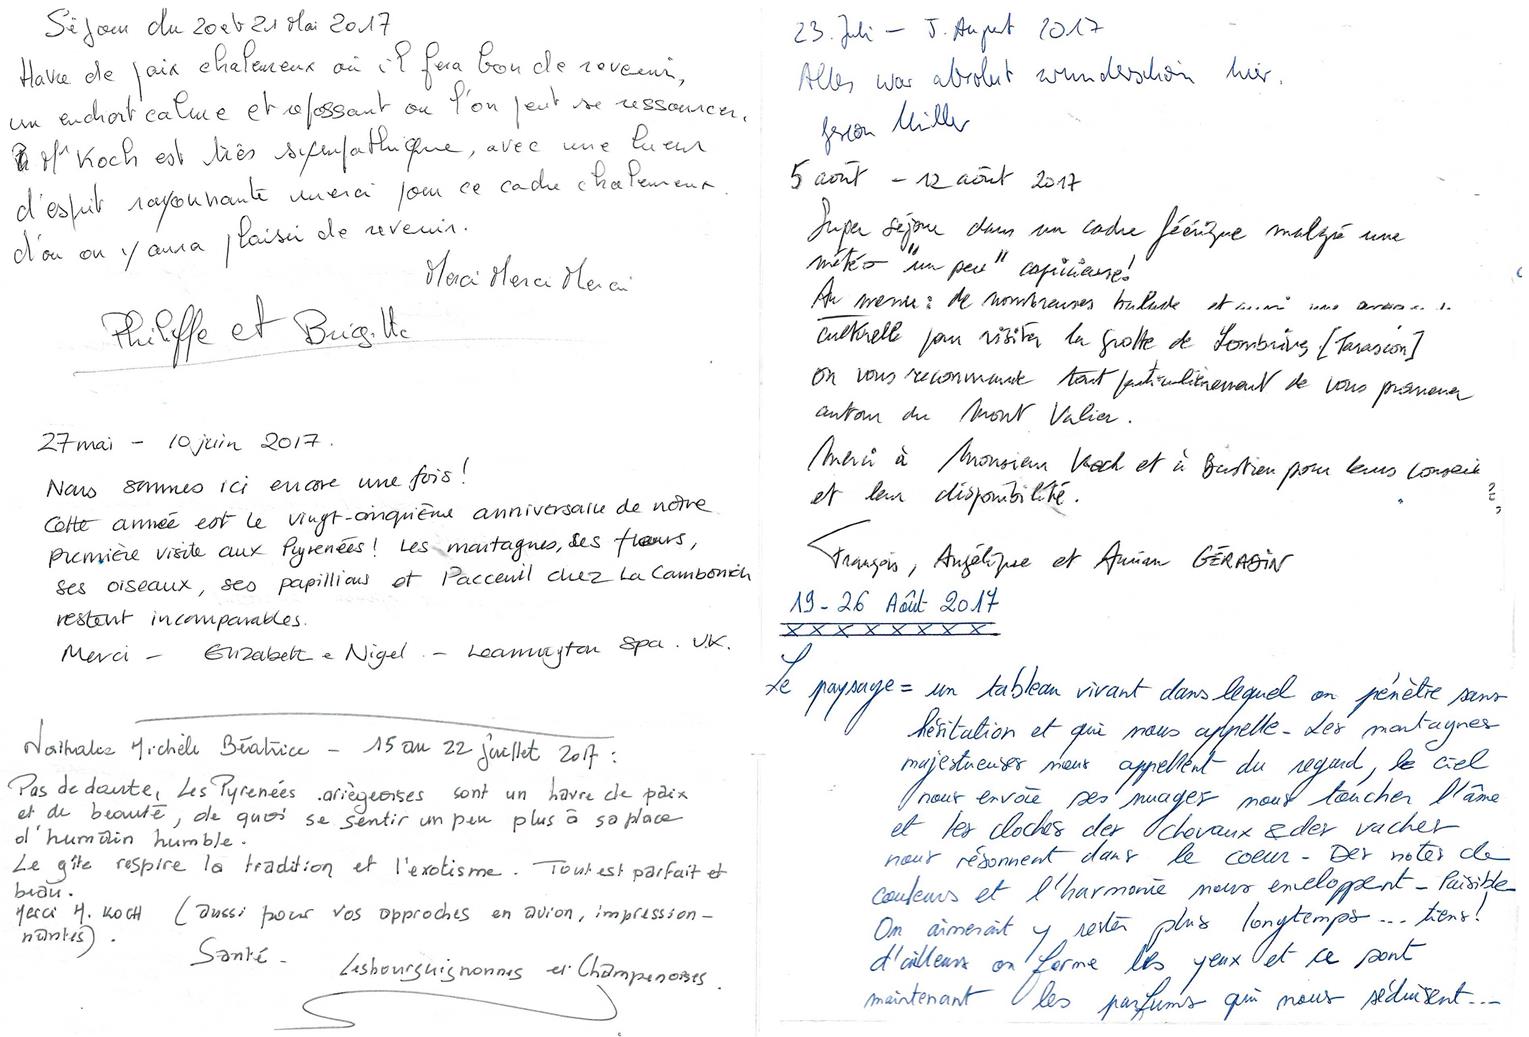 Séjour du 20 et 21 Mai 2017
Havre de paix chaleureux où il fera bon de revenir,
un endroit calme et reposant ou l'on peut se ressourcer.
Mr Koch est très sympathique, avec une lueur
d'esprit rayonnante merci pour ce cadre chaleureux.
d'ou on y aura plaisir de revenir.
Merci Merci Merci
Philippe et Brigitte
27 mai - 10 juin 2017.
Nous sommes ici encore une fois!
Cette année est le vingt-cinquième anniversaire de notre
première visite aux Pyrenées! Les montagnes, ses fleurs,
ses oiseaux, ses papillions et l'acceuil chez La Cambonich
restent incomparables.
Merci - Elizabeth e Nigel. - Leamington Spa. U.K.
Nathalie Michèle Béatrice - 15 au 22 juillet 2017 :
Pas de doute, Les Pyrenées ariègeoises sont un havre de paix
et de beauté, de quoi se sentir un peu plus à sa place
d'humain humble.
Le gîte respire la tradition et l'exotisme. Tout est parfait et
beau.
Merci M. KOCH (aussi pour vos approches en avion, impression-
nantes).
Santé -
Les bourguignonnes et Champenoises.
23. Juli - 5. August 2017
Alles war absolut wunderschön hier.
Miller
5 août - 12 août 2017
Super séjour dans un cadre féérique malgré une
météo "un peu" capricieuse!
Au menu : de nombreuses balade et aussi une
culturelle pour visiter la grotte de Lombrives [Tarascon]
on vous recommande tout particulièrement de vous promener
autour du Mont Valier.
Merci à Monsieur Koch et à Bastien pour leurs conseils
et leur disponibilité.
François, Angélique et GÉRADIN
19 - 26 Août 2017
x x x x x x x x x
Le paysage = un tableau vivant dans lequel on pénètre sans
hésitation et qui nous appelle - Les montagnes
majestueuses nous appellent du regard, le ciel
nous envoie ses nuages nous toucher l'âme
et les cloches des chevaux & des vaches
nous résonnent dans le coeur - Des notes de
couleurs et l'harmonie nous enveloppent - Paisible
On aimerait y rester plus longtemps ... tiens!
d'ailleurs on ferme les yeux et ce sont
maintenant les parfums qui nous séduisent...